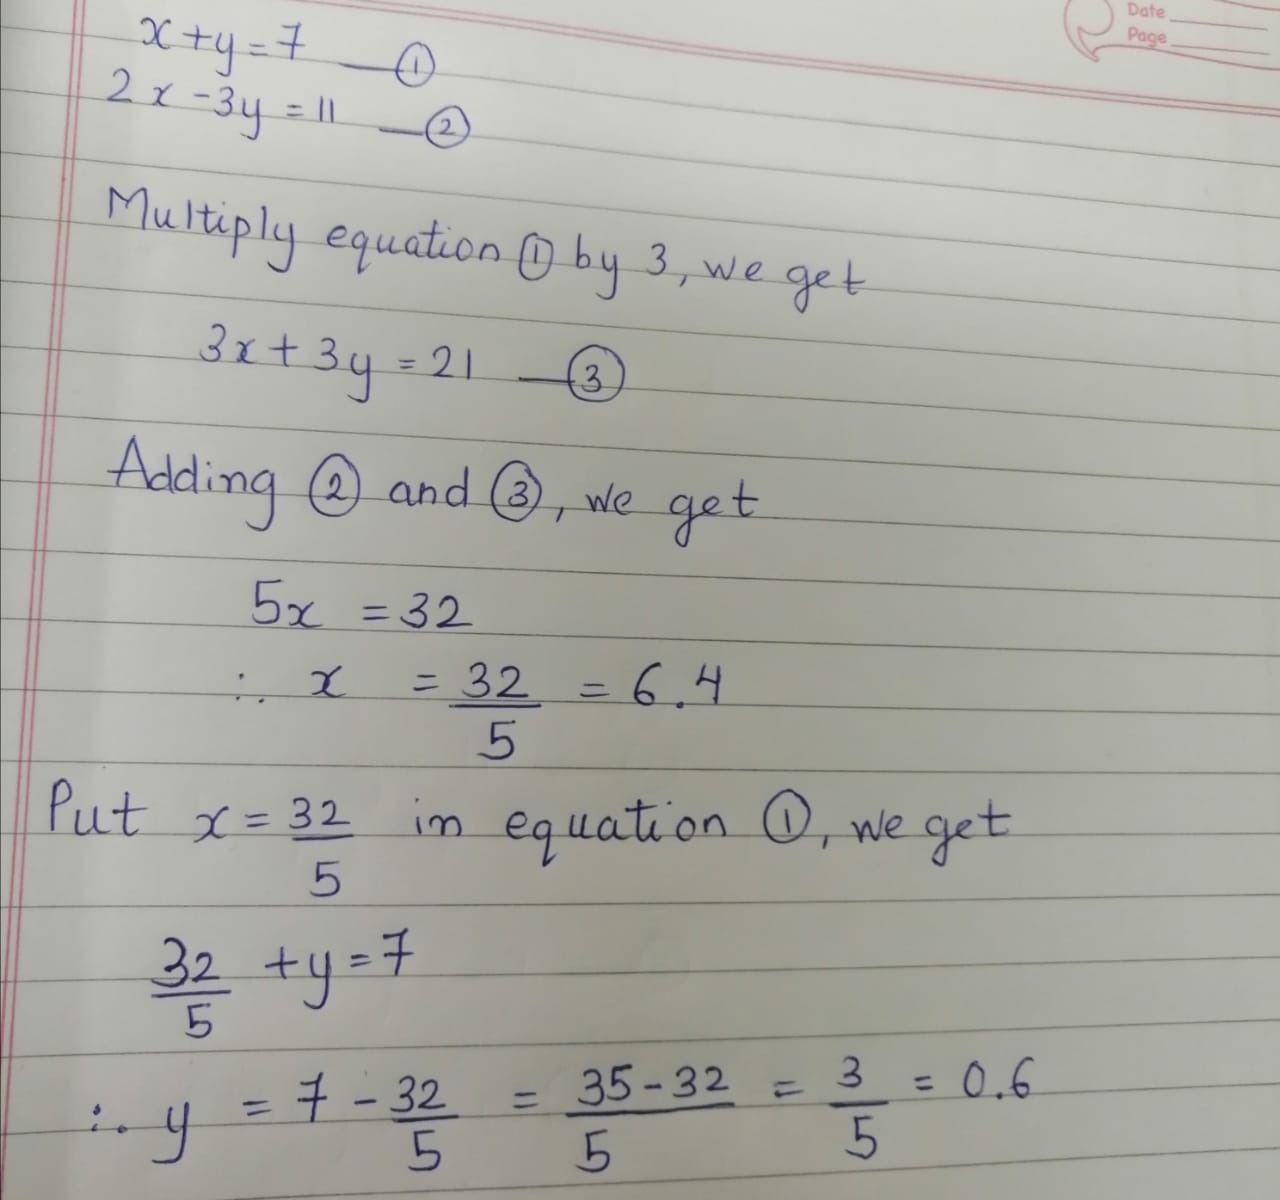 Date
Page
x+y=7 —①
2x-3y=11 —②
Multiply equation ① by 3, we get
3x+3y=21 —③
Adding ② and ③, we get
5x = 32
∴ x = 32/5 = 6.4
Put x = 32/5 in equation ①, we get
32/5 +y=7
∴ y = 7 - 32/5 = 35-32/5 = 3/5 = 0.6